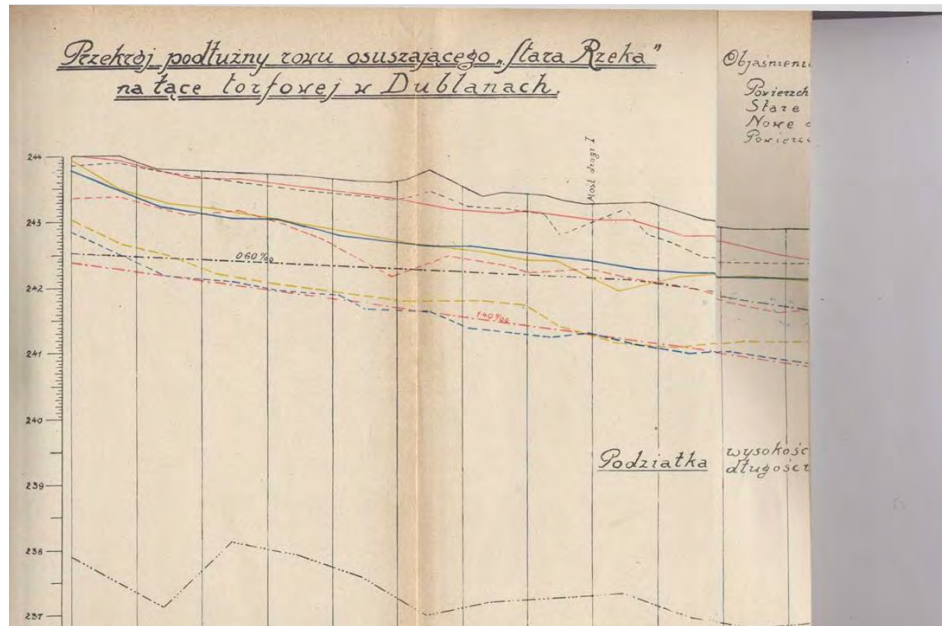 Przekrój podłużny rowu osuszającego „Stara Rzeka”
na łące torfowej w Dublanach.
Objaśnieni
Powierzch
Stare
Nowe
Powierz
Most drogi I
244
243
242
241
240
239
238
237
0 60 ‰
1·40 ‰
Podziałka
wysokośc
długości